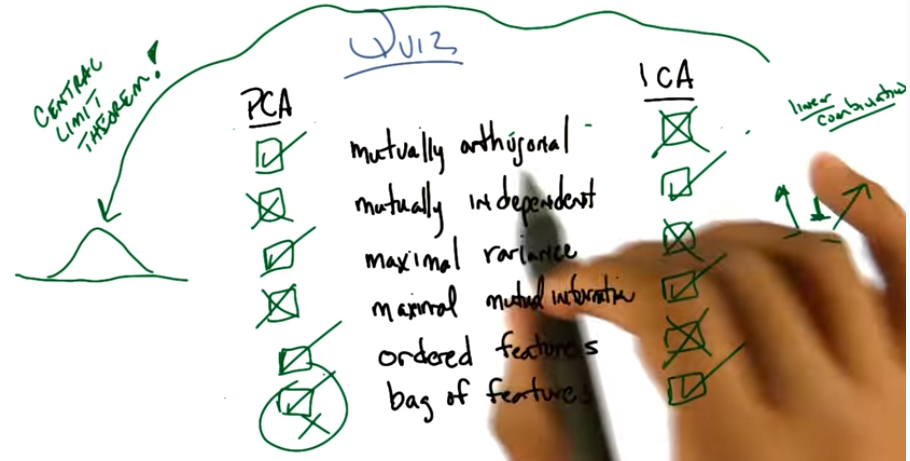 Quiz
CENTRAL
LIMIT
THEOREM!
PCA
ICA
linear
combination
mutually orthogonal
mutually independent
maximal variance
maximal mutual information
ordered features
bag of features